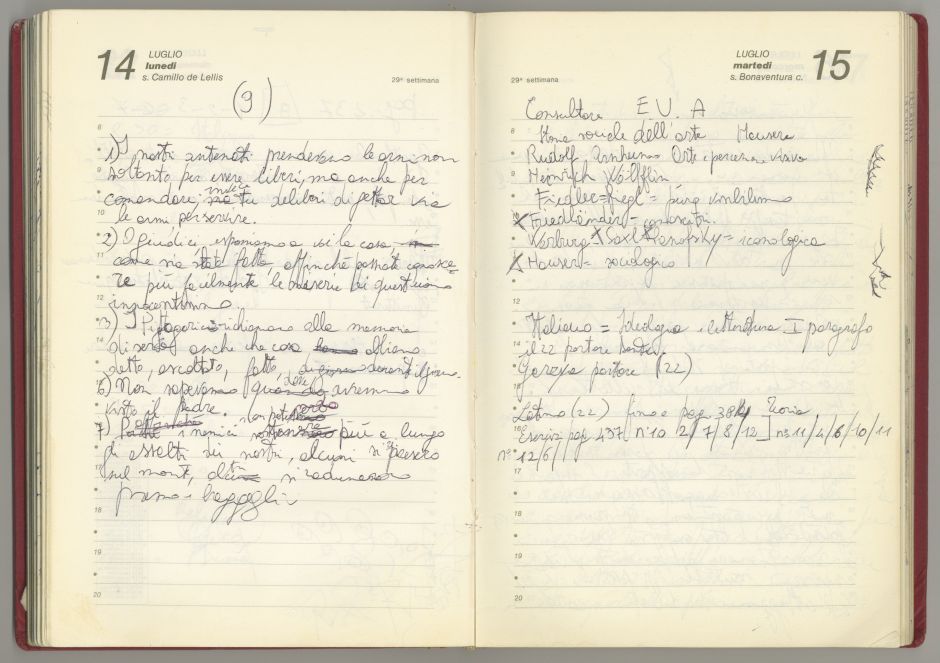 14 LUGLIO
lunedì
s. Camillo de Lellis
29ª settimana
(9)
1) I nostri antenati prenderono le armi non
soltanto per essere liberi, ma anche per
comandare, invece tu deliberi di gettar via
le armi per servire.
2) O Giudici esponiamo a voi la cosa
come sia stata fatta affinché possiate conosce-
re più facilmente le miserie di quest'uomo
innocentissimo
3) I Pitagorici richiamano alla memoria
di sera anche che cosa abbiamo
detto, ascoltato, fatto, durante il giorno.
6) Non sapevamo quando avremmo
visto il padre.
7) i nemici più a lungo
di assalti dei nostri, alcuni
sul monte, altri si radunarono
presso i bagagli
8
9
10
11
12
13
14
15
16
17
18
19
20
LUGLIO 15
martedì
s. Bonaventura c.
29ª settimana
Consultare E.V.A
Storia sociale dell'arte Hauser
Rudolf Arnheim Arte e percezione visiva
Heinrich Wölfflin
Fiedler = Riegl = pura visibilismo
X Friedländer =
Warburg X Saxl X Panofsky = iconologica
X Hauser = sociologico
Italiano = Ideologia e letteratura I paragrafo
il 22 portare
portare (22)
Latino (22) fino a pag. 384 Teoria
Esercizi pag. 437 n° 10 2/7/8/12 n° 11/4/6/10/11
n° 12/6/
8
9
10
11
12
13
14
15
16
17
18
19
20